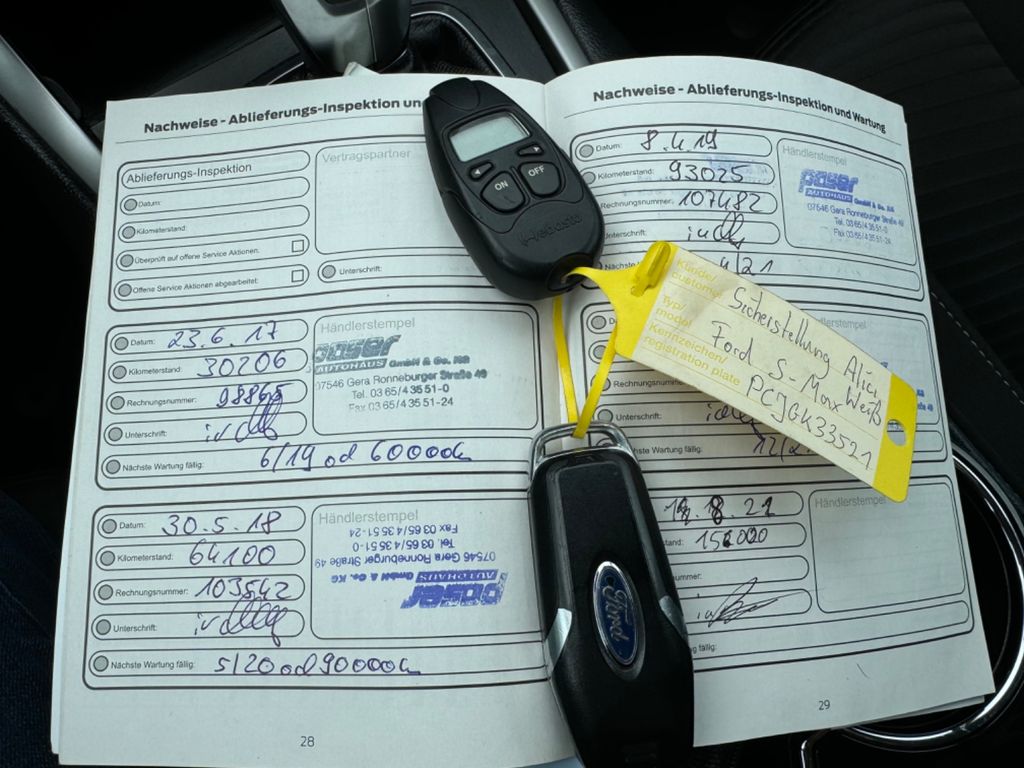 Nachweise - Ablieferungs-Inspektion un
Ablieferungs-Inspektion
Vertragspartner
Datum:
Kilometerstand:
Überprüft auf offene Service Aktionen.
Offene Service Aktionen abgearbeitet:
Unterschrift:
Datum: 23.6.17
Händlerstempel
Kilometerstand: 30206
poser
AUTOHAUS GmbH & Co. KG
07546 Gera Ronneburger Straße 49
Tel. 03 65/4 35 51-0
Fax 03 65/4 35 51-24
Rechnungsnummer: 98865
Unterschrift:
Nächste Wartung fällig: 6/19 od 60000
Datum: 30.5.18
Händlerstempel
Kilometerstand: 64100
Rechnungsnummer: 103542
poser
AUTOHAUS GmbH & Co. KG
07546 Gera Ronneburger Straße 49
Tel. 03 65/4 35 51-0
Fax 03 65/4 35 51-24
Unterschrift:
Nächste Wartung fällig: 5/20 od 90000
28
ON OFF
Webasto
Ford
Nachweise - Ablieferungs-Inspektion und Wartung
Datum: 8.4.19
Händlerstempel
Kilometerstand: 93025
Rechnungsnummer: 107482
poser
AUTOHAUS GmbH & Co. KG
07546 Gera Ronneburger Straße 49
Tel. 03 65/4 35 51-0
Fax 03 65/4 35 51-24
Unterschrift:
Nächste 4/21
Kunde/
customer
Typ/
model
Kennzeichen/
registration plate
Sicherstellung
Ford S-Max Weiß
PCJGK33521
Rechnungsnummer
Unterschrift:
Nächste Wartung fällig: 12/2
8 21
Händlerstempel
stand:
nummer:
ng fällig:
29